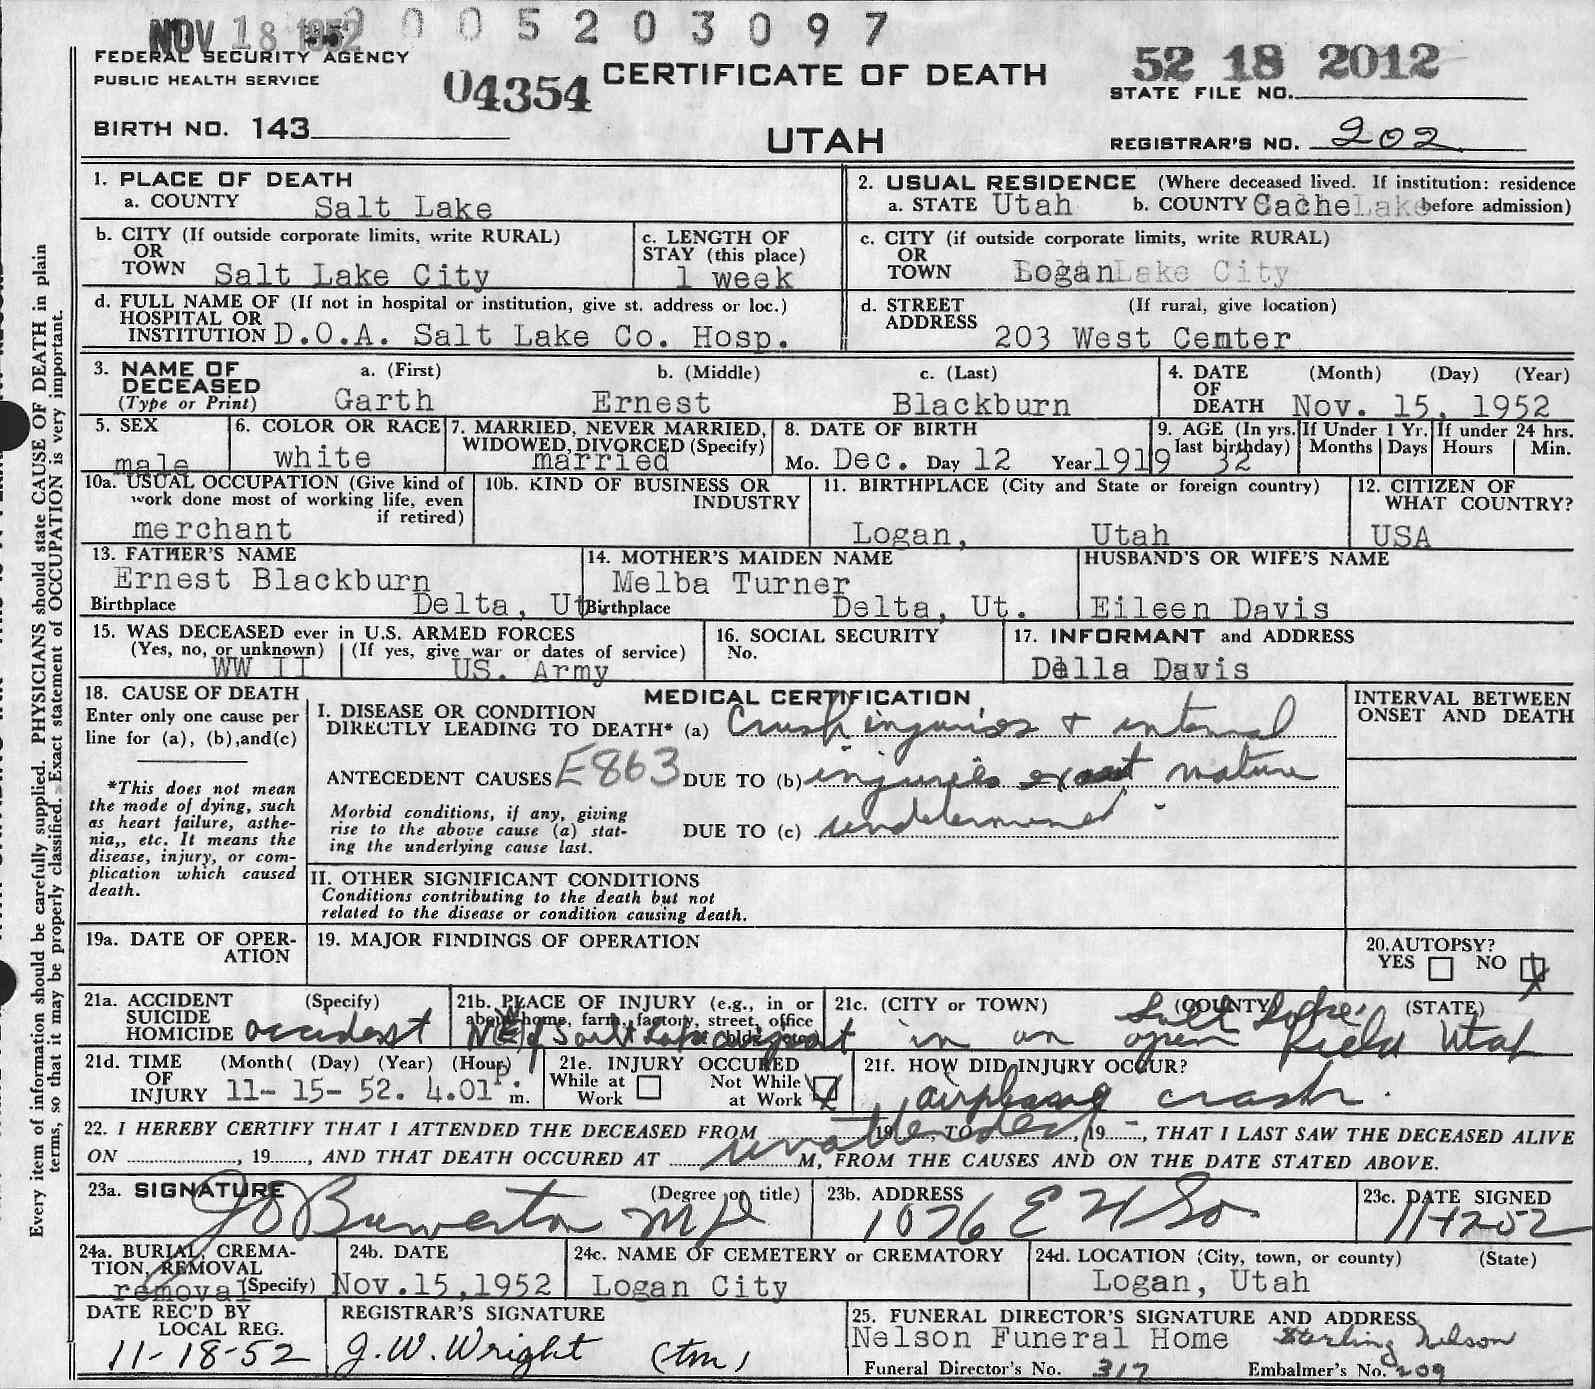 NOV 18 1952 0 0 5 2 0 3 0 9 7
FEDERAL SECURITY AGENCY
PUBLIC HEALTH SERVICE
04354 CERTIFICATE OF DEATH
52 18 2012
STATE FILE NO.
BIRTH NO. 143
UTAH
REGISTRAR'S NO. 202
1. PLACE OF DEATH
a. COUNTY Salt Lake
2. USUAL RESIDENCE (Where deceased lived. If institution: residence
a. STATE Utah b. COUNTY Cache Lake before admission)
b. CITY (If outside corporate limits, write RURAL)
OR
TOWN Salt Lake City
c. LENGTH OF
STAY (this place)
1 week
c. CITY (if outside corporate limits, write RURAL)
OR
TOWN Logan Lake City
d. FULL NAME OF (If not in hospital or institution, give st. address or loc.)
HOSPITAL OR
INSTITUTION D.O.A. Salt Lake Co. Hosp.
d. STREET (If rural, give location)
ADDRESS 203 West Center
3. NAME OF a. (First) b. (Middle) c. (Last)
DECEASED
(Type or Print) Garth Ernest Blackburn
4. DATE (Month) (Day) (Year)
OF
DEATH Nov. 15, 1952
5. SEX
male
6. COLOR OR RACE
white
7. MARRIED, NEVER MARRIED,
WIDOWED, DIVORCED (Specify)
married
8. DATE OF BIRTH
Mo. Dec. Day 12 Year 1919
9. AGE (In yrs.
last birthday)
32
If Under 1 Yr.
Months Days
If under 24 hrs.
Hours Min.
10a. USUAL OCCUPATION (Give kind of
work done most of working life, even
if retired)
merchant
10b. KIND OF BUSINESS OR
INDUSTRY
11. BIRTHPLACE (City and State or foreign country)
Logan, Utah
12. CITIZEN OF
WHAT COUNTRY?
USA
13. FATHER'S NAME
Ernest Blackburn
Birthplace Delta, Ut.
14. MOTHER'S MAIDEN NAME
Melba Turner
Birthplace Delta, Ut.
HUSBAND'S OR WIFE'S NAME
Eileen Davis
15. WAS DECEASED ever in U.S. ARMED FORCES
(Yes, no, or unknown) (If yes, give war or dates of service)
WW II US. Army
16. SOCIAL SECURITY
No.
17. INFORMANT and ADDRESS
Della Davis
18. CAUSE OF DEATH
Enter only one cause per
line for (a), (b),and(c)
*This does not mean
the mode of dying, such
as heart failure, asthe-
nia,, etc. It means the
disease, injury, or com-
plication which caused
death.
MEDICAL CERTIFICATION
I. DISEASE OR CONDITION
DIRECTLY LEADING TO DEATH* (a) Crush injuries + internal
ANTECEDENT CAUSES E863 DUE TO (b) injuries exact nature
Morbid conditions, if any, giving
rise to the above cause (a) stat-
ing the underlying cause last.
DUE TO (c) undetermined
INTERVAL BETWEEN
ONSET AND DEATH
II. OTHER SIGNIFICANT CONDITIONS
Conditions contributing to the death but not
related to the disease or condition causing death.
19a. DATE OF OPER-
ATION
19. MAJOR FINDINGS OF OPERATION
20. AUTOPSY?
YES NO
21a. ACCIDENT (Specify)
SUICIDE
HOMICIDE accident
21b. PLACE OF INJURY (e.g., in or
about home, farm, factory, street, office
21c. (CITY or TOWN) (COUNTY) (STATE)
Salt Lake
N E of Salt Lake airport in an open field Utah
21d. TIME (Month( (Day) (Year) (Hour)
OF
INJURY 11- 15- 52. 4.01 P. m.
21e. INJURY OCCURED
While at Work
Not While at Work
21f. HOW DID INJURY OCCUR?
airplane crash.
22. I HEREBY CERTIFY THAT I ATTENDED THE DECEASED FROM unattended, 19......, TO ............, 19......, THAT I LAST SAW THE DECEASED ALIVE
ON ............, 19......, AND THAT DEATH OCCURED AT ............M, FROM THE CAUSES AND ON THE DATE STATED ABOVE.
23a. SIGNATURE (Degree or title)
MD
23b. ADDRESS
1076 E 4 So.
23c. DATE SIGNED
24a. BURIAL, CREMA-
TION, REMOVAL
removal (Specify)
24b. DATE
Nov.15,1952
24c. NAME OF CEMETERY or CREMATORY
Logan City
24d. LOCATION (City, town, or county) (State)
Logan, Utah
DATE REC'D BY
LOCAL REG.
11-18-52
REGISTRAR'S SIGNATURE
J. W. Wright (tm)
25. FUNERAL DIRECTOR'S SIGNATURE AND ADDRESS
Nelson Funeral Home Sterling Nelson
Funeral Director's No. 317 Embalmer's No. 209
Every item of information should be carefully supplied. PHYSICIANS should state CAUSE OF DEATH in plain
terms, so that it may be properly classified. Exact statement of OCCUPATION is very important.